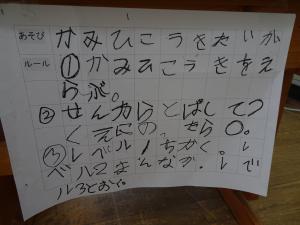 あそび かみひこうきたいかい
ルール ①かみひこうきをえ
らぶ。
②せん力らとばしてつ
くえにの、たら〇。
③レベル1ちかく。レ
ベル2まんなか.レべ
ル3とおく。